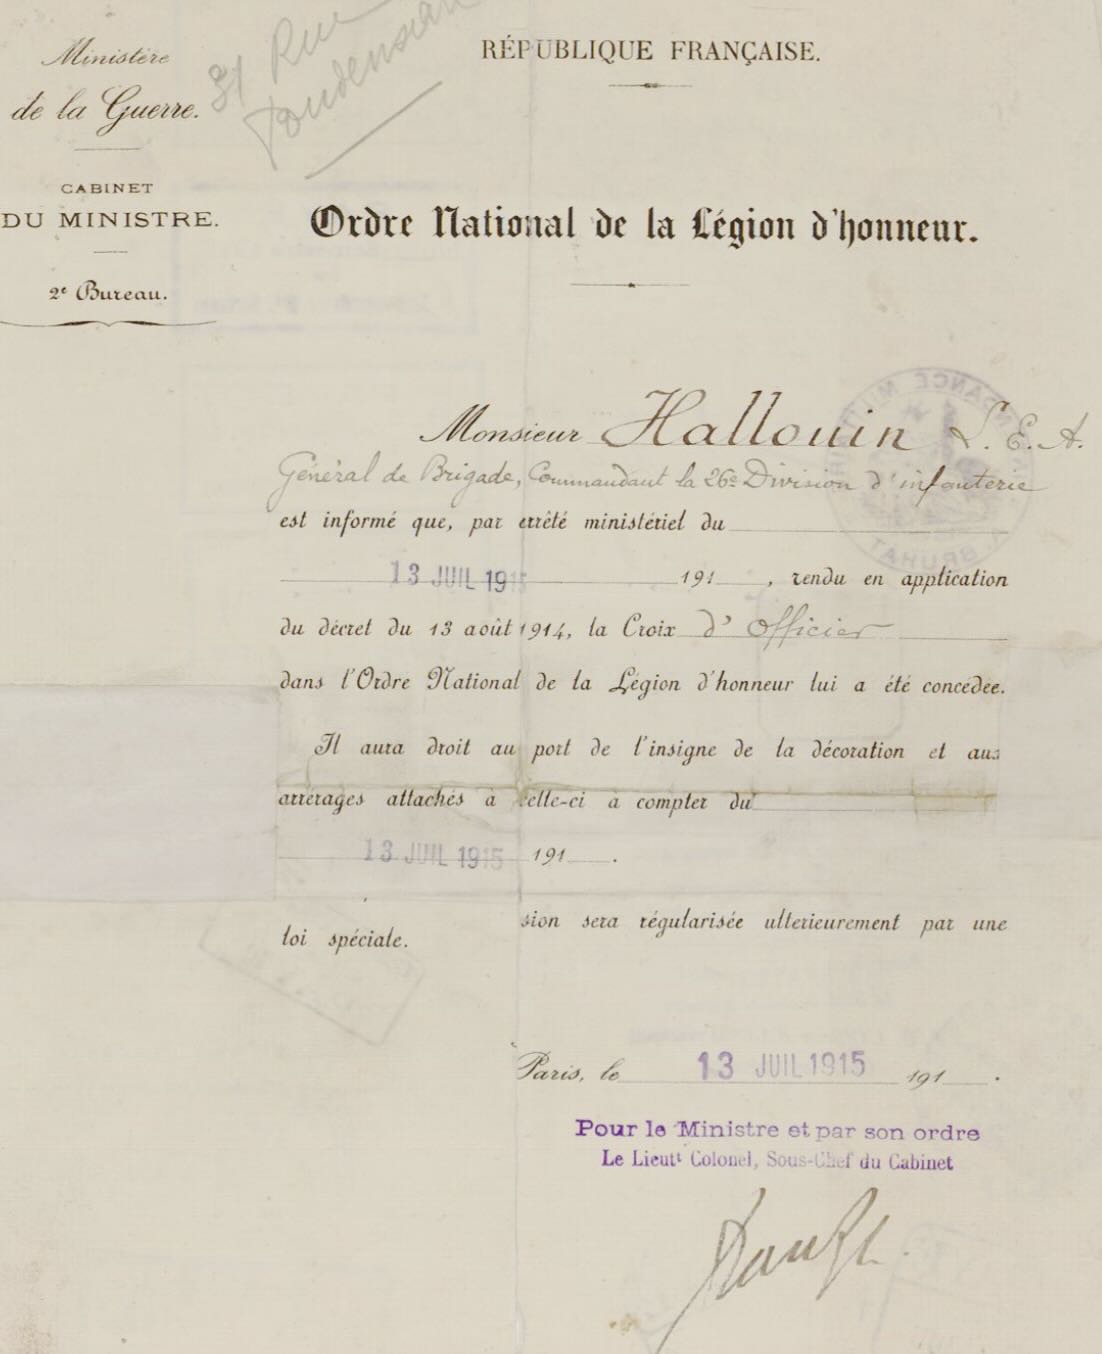 Ministère
de la Guerre.
CABINET
DU MINISTRE.
2e Bureau.
31 Rue
RÉPUBLIQUE FRANÇAISE.
Ordre National de la Légion d'honneur.
Monsieur Hallouin L. E. A.
Général de Brigade, Commandant la 26e Division d'infanterie
est informé que, par arrêté ministériel du
13 JUIL 191 191 , rendu en application
du décret du 13 août 1914, la Croix d'Officier
dans l'Ordre National de la Légion d'honneur lui a été concédée.
Il aura droit au port de l'insigne de la décoration et aux
arrérages attachés à celle-ci à compter du
13 JUIL 1915 191 .
sion sera régularisée ultérieurement par une
loi spéciale.
Paris, le 13 JUIL 1915 191 .
Pour le Ministre et par son ordre
Le Lieutt Colonel, Sous-Chef du Cabinet